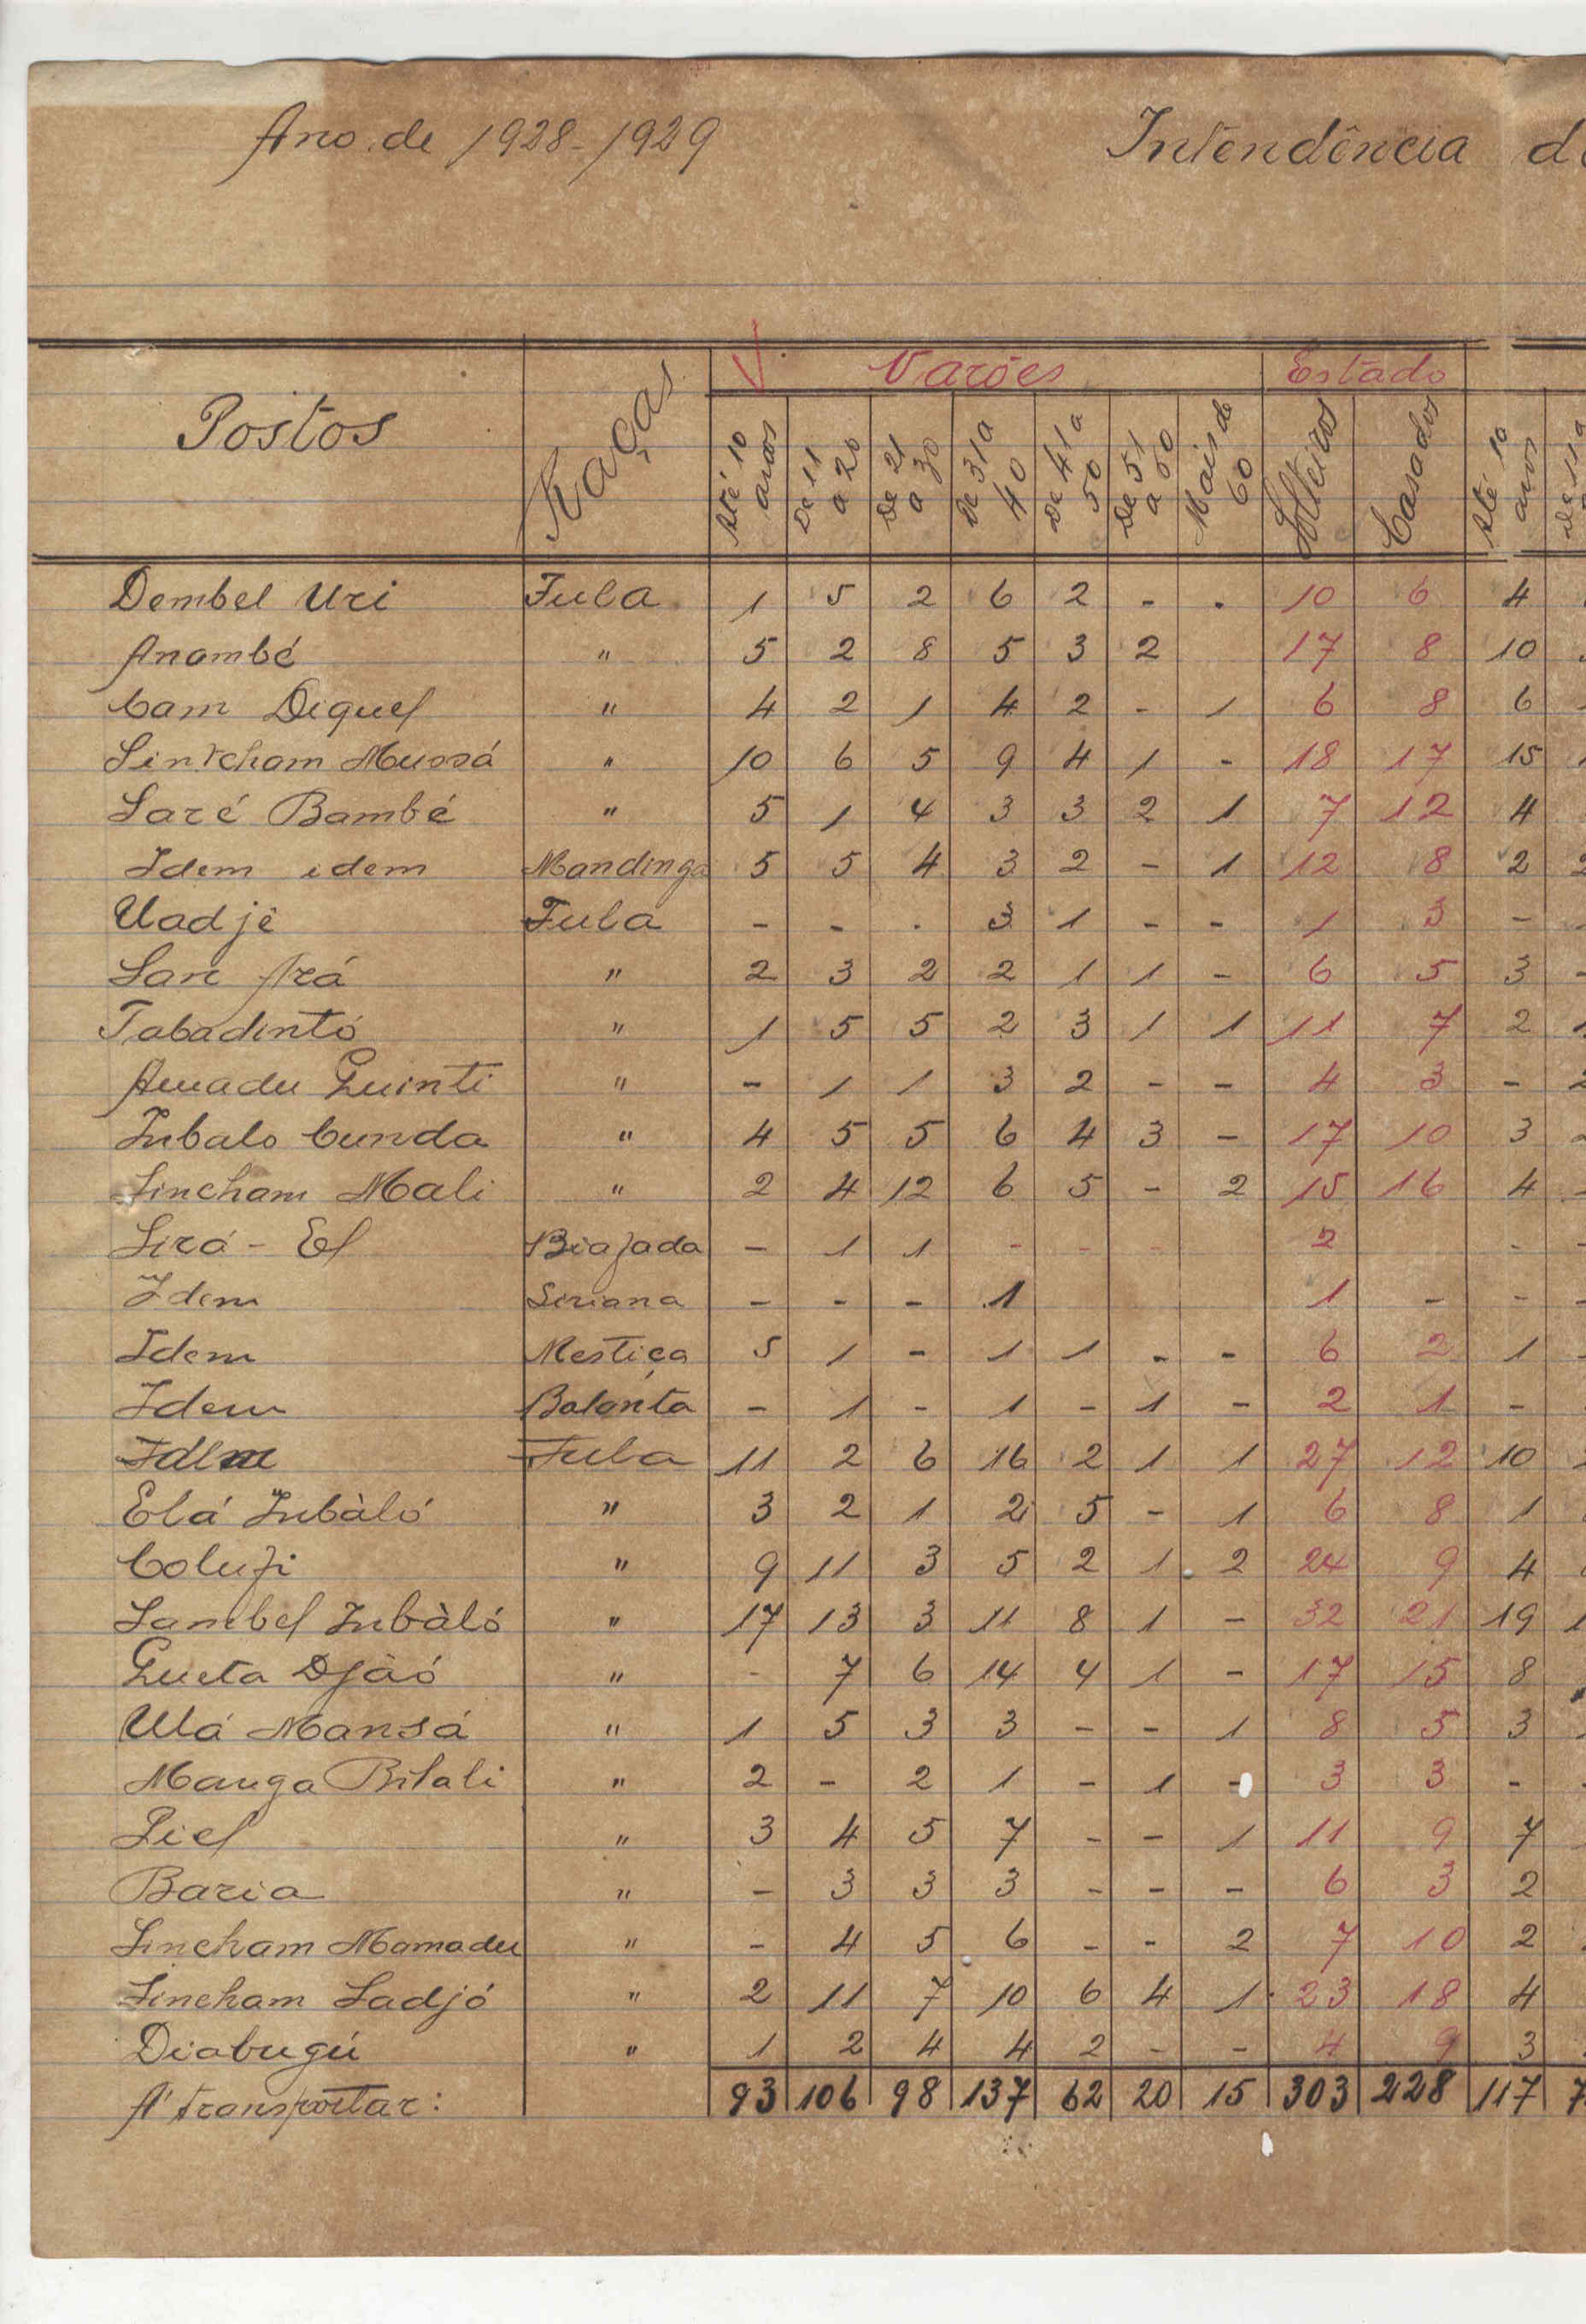 Ano de 1928-1929 Intendência d
Postos Raças Varões Estado
Até 10 anos De 11 a 20 De 21 a 30 De 31 a 40 De 41 a 50 De 51 a 60 Mais de 60 Solteiros Casados Até 10 anos De 11 a
Dembel Uri Fula 1 5 2 6 2 - . 10 6 4
Anambé " 5 2 8 5 3 2 17 8 10
Cam Diquel " 4 2 1 4 2 - 1 6 8 6
Sintcham Mussá " 10 6 5 9 4 1 - 18 17 15
Saré Bambé " 5 1 4 3 3 2 1 7 12 4
Idem idem Mandinga 5 5 4 3 2 - 1 12 8 2 2
Uadjê Fula - - . 3 1 - - 1 3 -
Sare Ará " 2 3 2 2 1 1 - 6 5 3 -
Tabadintó " 1 5 5 2 3 1 1 11 7 2 1
Amadu Quinti " - 1 1 3 2 - - 4 3 - 2
Jubalo Cunda " 4 5 5 6 4 3 - 17 10 3
Sincham Mali " 2 4 12 6 5 - 2 15 16 4
Sirá - El Biafada - 1 1 - - - 2 - -
Idem Siriana - - - 1 1 - - -
Idem Mestiça 5 1 - 1 1 - - 6 2 1
Idem Balanta - 1 - 1 - 1 - 2 1 -
Idem Fula 11 2 6 16 2 1 1 27 12 10
Elá Jubàló " 3 2 1 2 5 - 1 6 8 1
Colufi " 9 11 3 5 2 1 2 24 9 4
Sambel Jubàló " 17 13 3 11 8 1 - 32 21 19 1
Queta Djàó " - 7 6 14 4 1 - 17 15 8
Ulá Mansá " 1 5 3 3 - - 1 8 5 3
Manga Bilali " 2 - 2 1 - 1 - 3 3 -
Piel " 3 4 5 7 - - 1 11 9 7
Baria " - 3 3 3 - - - 6 3 2
Sincham Mamadu " - 4 5 6 - - 2 7 10 2
Sincham Sadjó " 2 11 7 10 6 4 1 23 18 4
Diabugú " 1 2 4 4 2 - - 4 9 3
A' transportar: 93 106 98 137 62 20 15 303 228 117 7